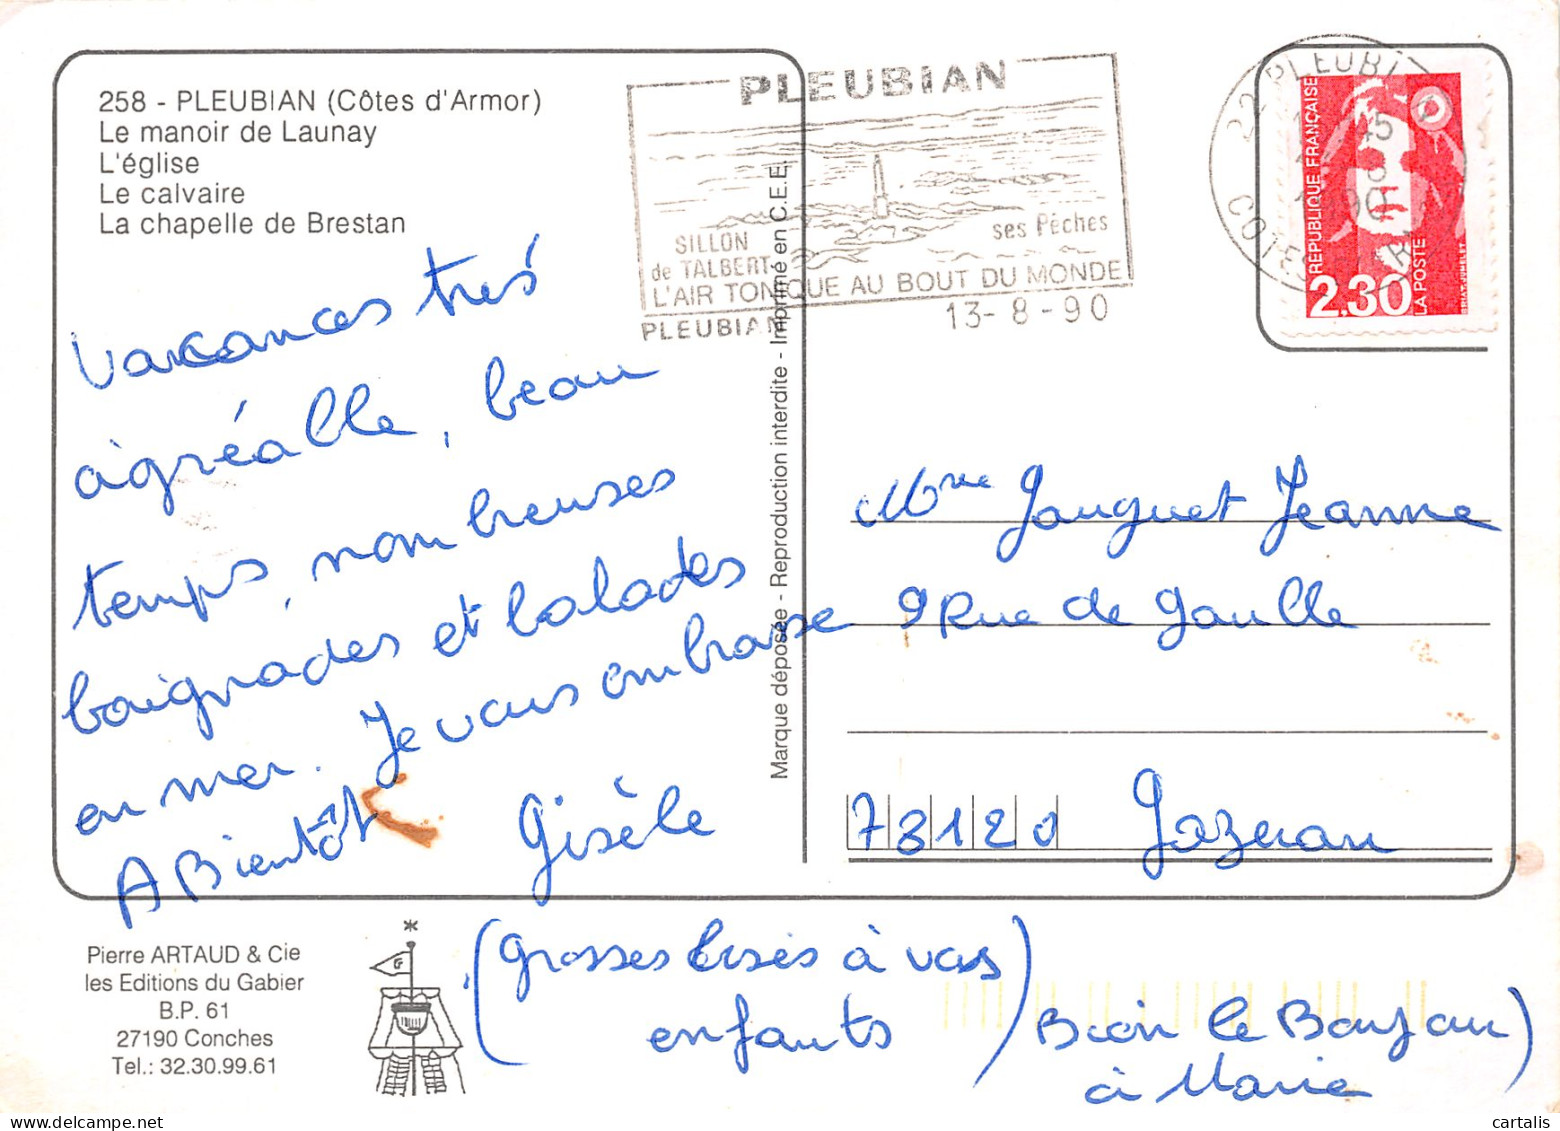 258 - PLEUBIAN (Côtes d'Armor)
Le manoir de Launay
L'église
Le calvaire
La chapelle de Brestan
Vacances très
agréable, beau
temps, nombreuses
baignades et balades
en mer. Je vous embrasse
A Bientôt Gisèle
(grosses bises à vos
enfants)
Bien le Bonjour)
à Marie
PLEUBIAN
SILLON
de TALBERT
ses Pêches
L'AIR TONIQUE AU BOUT DU MONDE
PLEUBIAN
13-8-90
22 PLEUBI
45
90
REPUBLIQUE FRANÇAISE
2.30
LA POSTE
BRIAT-JUMELET
Marque déposée - Reproduction interdite - Imprimé en C.E.E.
Mme Jouguet Jeanne
9 Rue de Gaulle
78120 Gazeran
Pierre ARTAUD & Cie
les Editions du Gabier
B.P. 61
27190 Conches
Tel.: 32.30.99.61
© cartalis